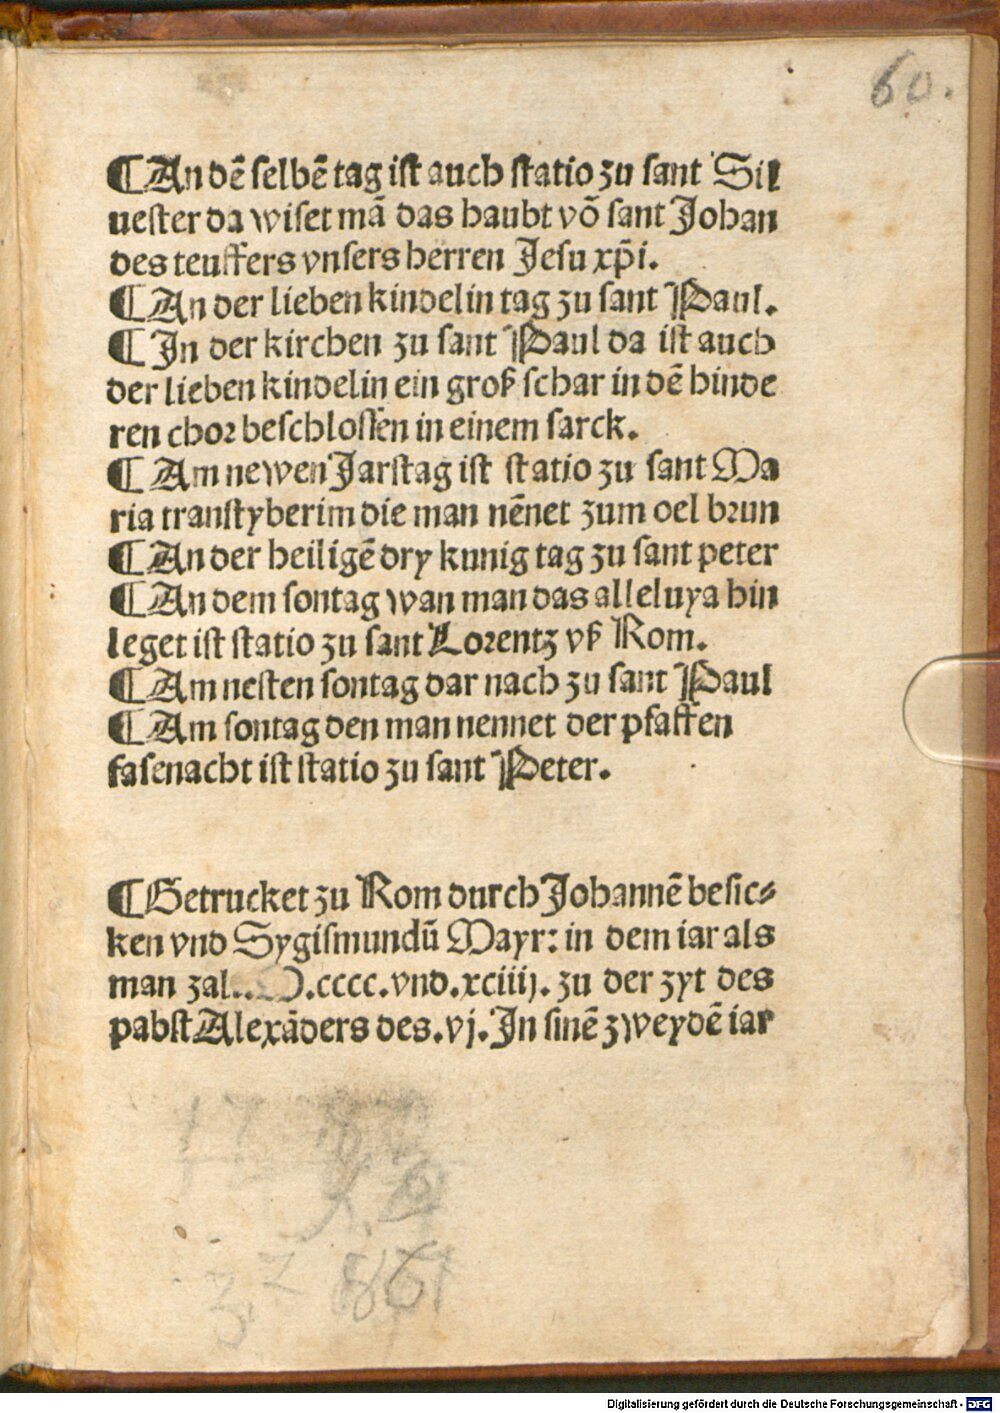 60.
¶ An dē selbē tag ist auch statio zu sant Sil
uester da wiset mā das haubt vō sant Johan
des teuffers vnsers herren Jesu xp̄i.
¶ An der lieben kindelin tag zu sant Paul.
¶ In der kirchen zu sant Paul da ist auch
der lieben kindelin ein groß schar in dē hinde
ren chor beschlossen in einem sarck.
¶ Am newen Jarstag ist statio zu sant Ma
ria transtyberim die man nēnet zum oel brun
¶ An der heiligē dry kunig tag zu sant peter
¶ An dem sontag wan man das alleluya hin
leget ist statio zu sant Lorentz vß Rom.
¶ Am nesten sontag dar nach zu sant Paul
¶ Am sontag den man nennet der pfaffen
fasenacht ist statio zu sant Peter.
¶ Getrucket zu Rom durch Johannē besic⸗
ken vnd Sygismundū Mayr: in dem iar als
man zal..M.cccc.vnd.xciiij. zu der zyt des
pabst Alexāders des.vj. In sinē zweydē iar
Digitalisierung gefördert durch die Deutsche Forschungsgemeinschaft - DFG